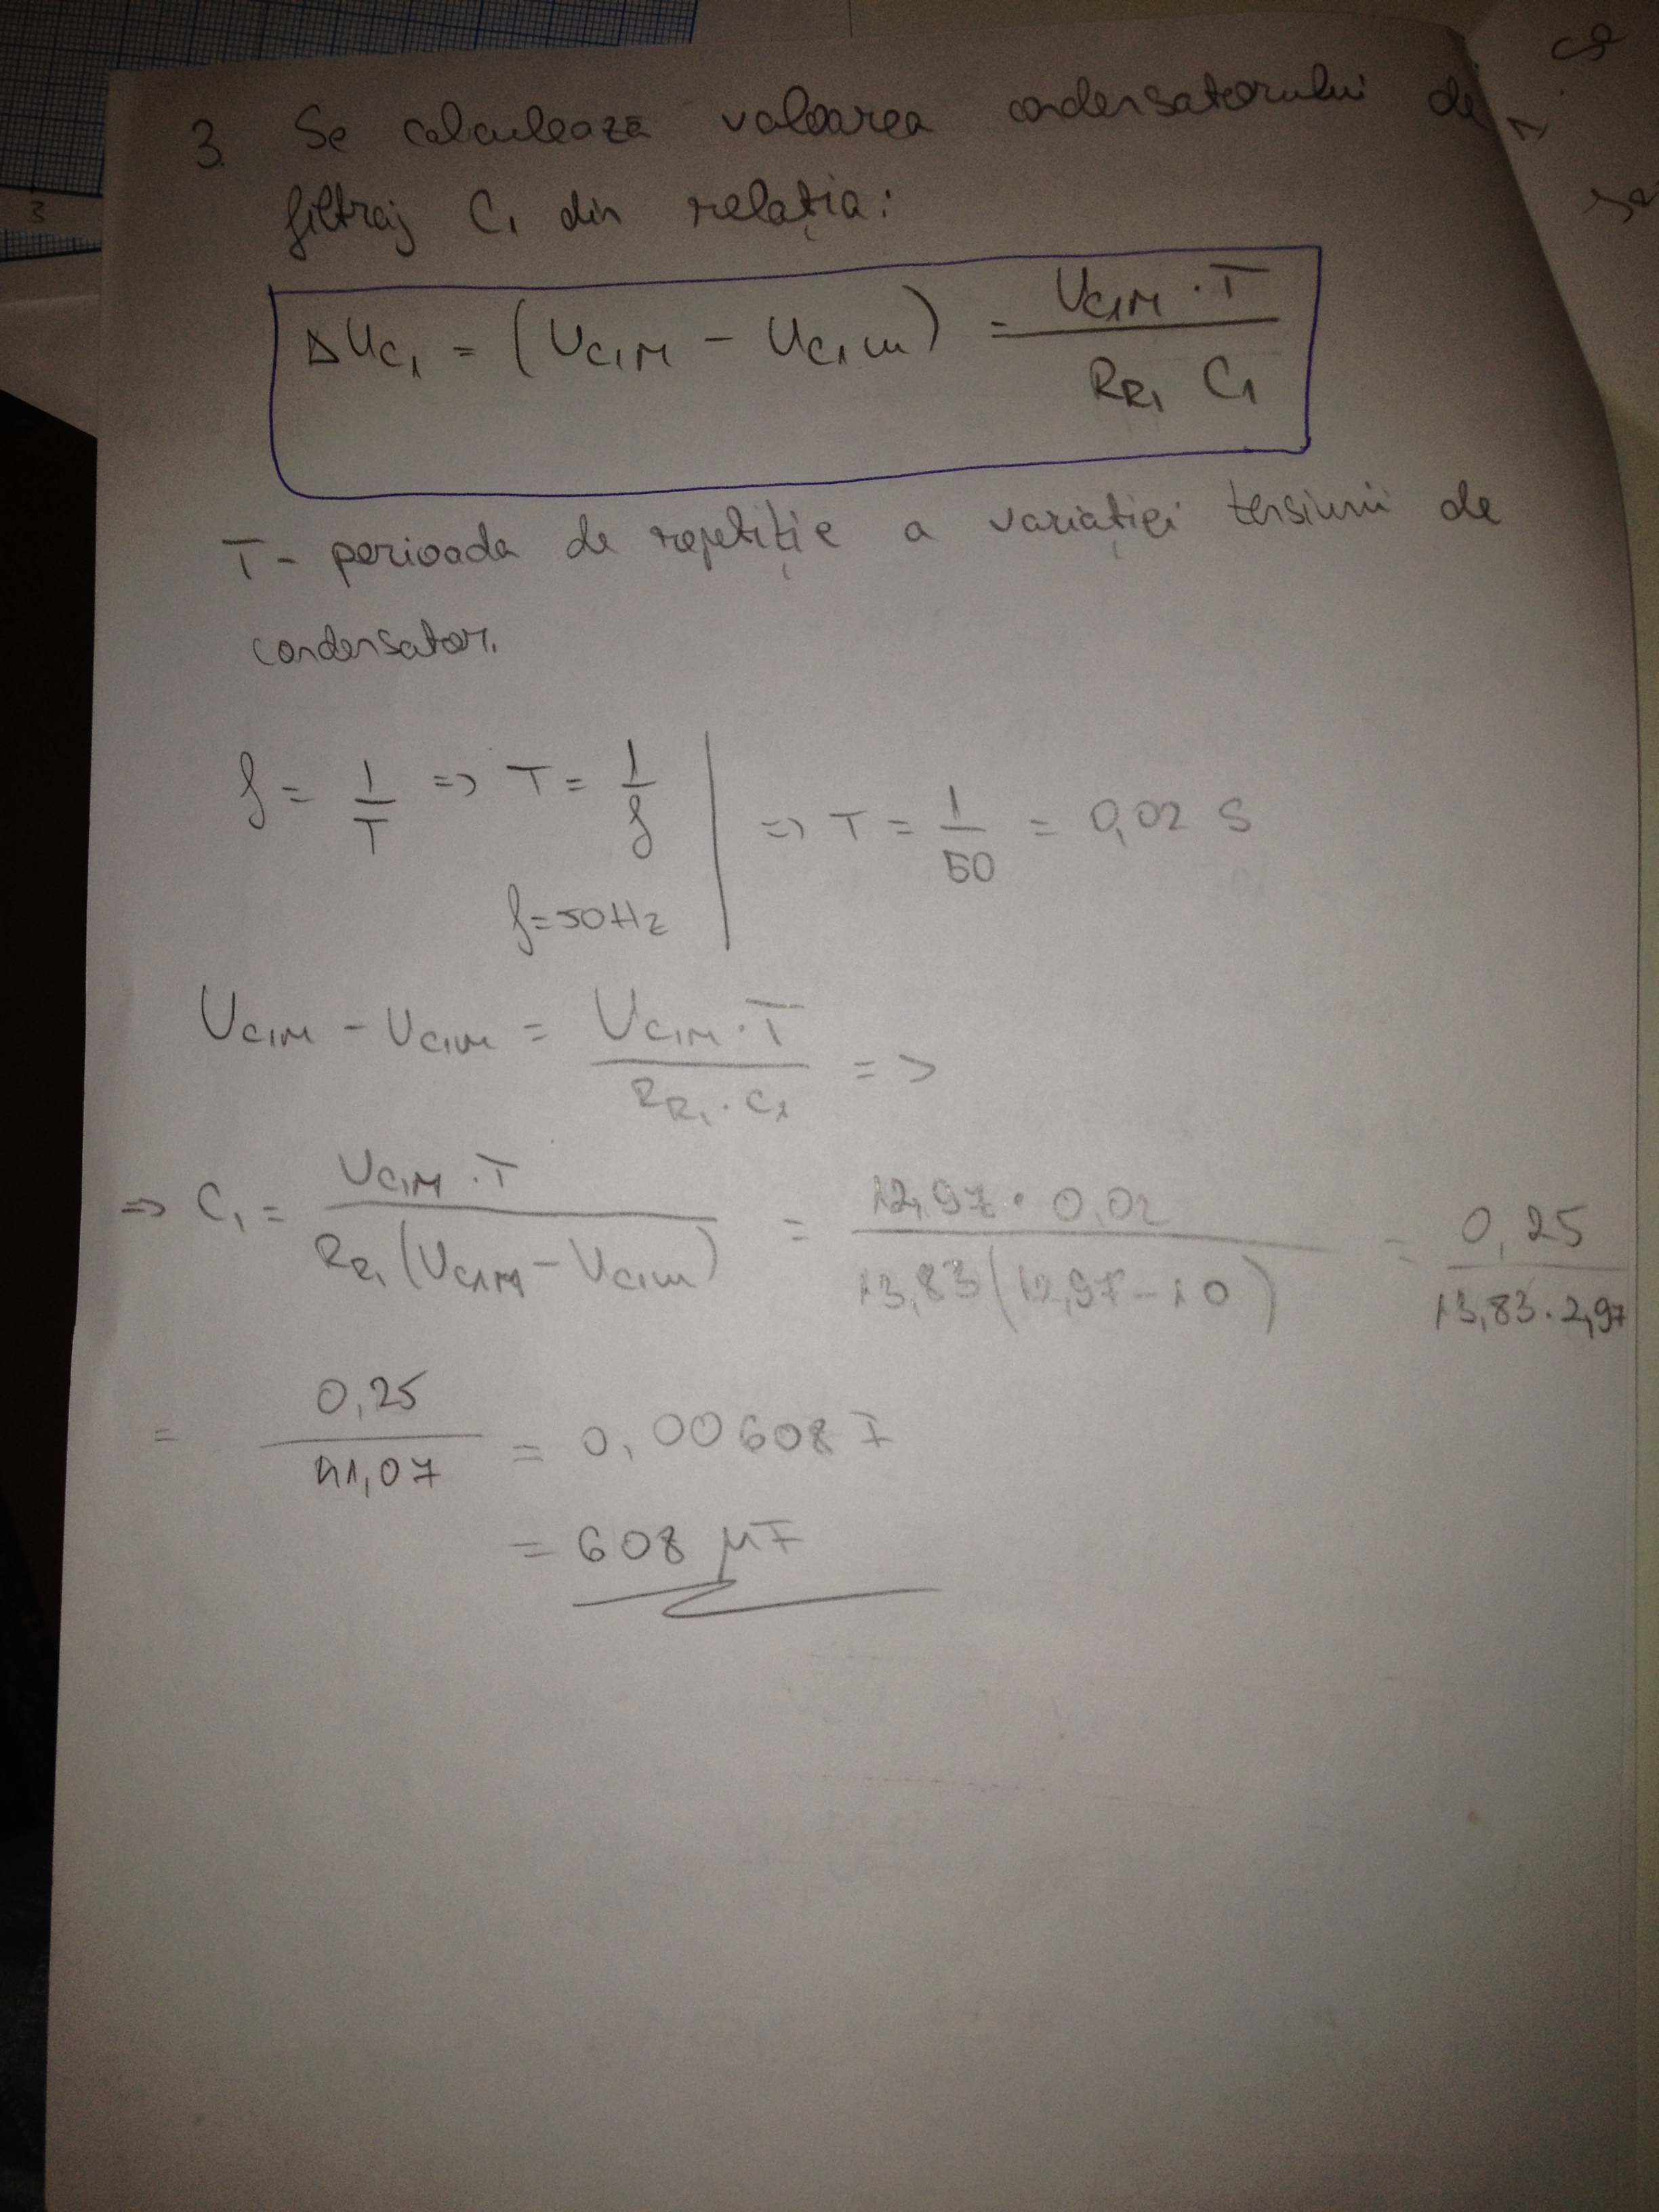 3. Se calculeaza valoarea condensatorului de
filtraj C1 din relația:
ΔUC1 = (UC1M - UC1m) = UC1M · T / RR1 C1
T - perioada de repetiție a variației tensiunii de
condensator.
f = 1/T => T = 1/f | => T = 1/50 = 0,02 S
f=50Hz
UC1M - UC1m = UC1M · T / RR1 · C1 =>
=> C1 = UC1M · T / RR1 (UC1M - UC1m) = 12,97 · 0,02 / 13,83 (12,97 - 10) = 0,25 / 13,83 · 2,97
= 0,25 / 41,07 = 0,00608 F
= 608 μF
3